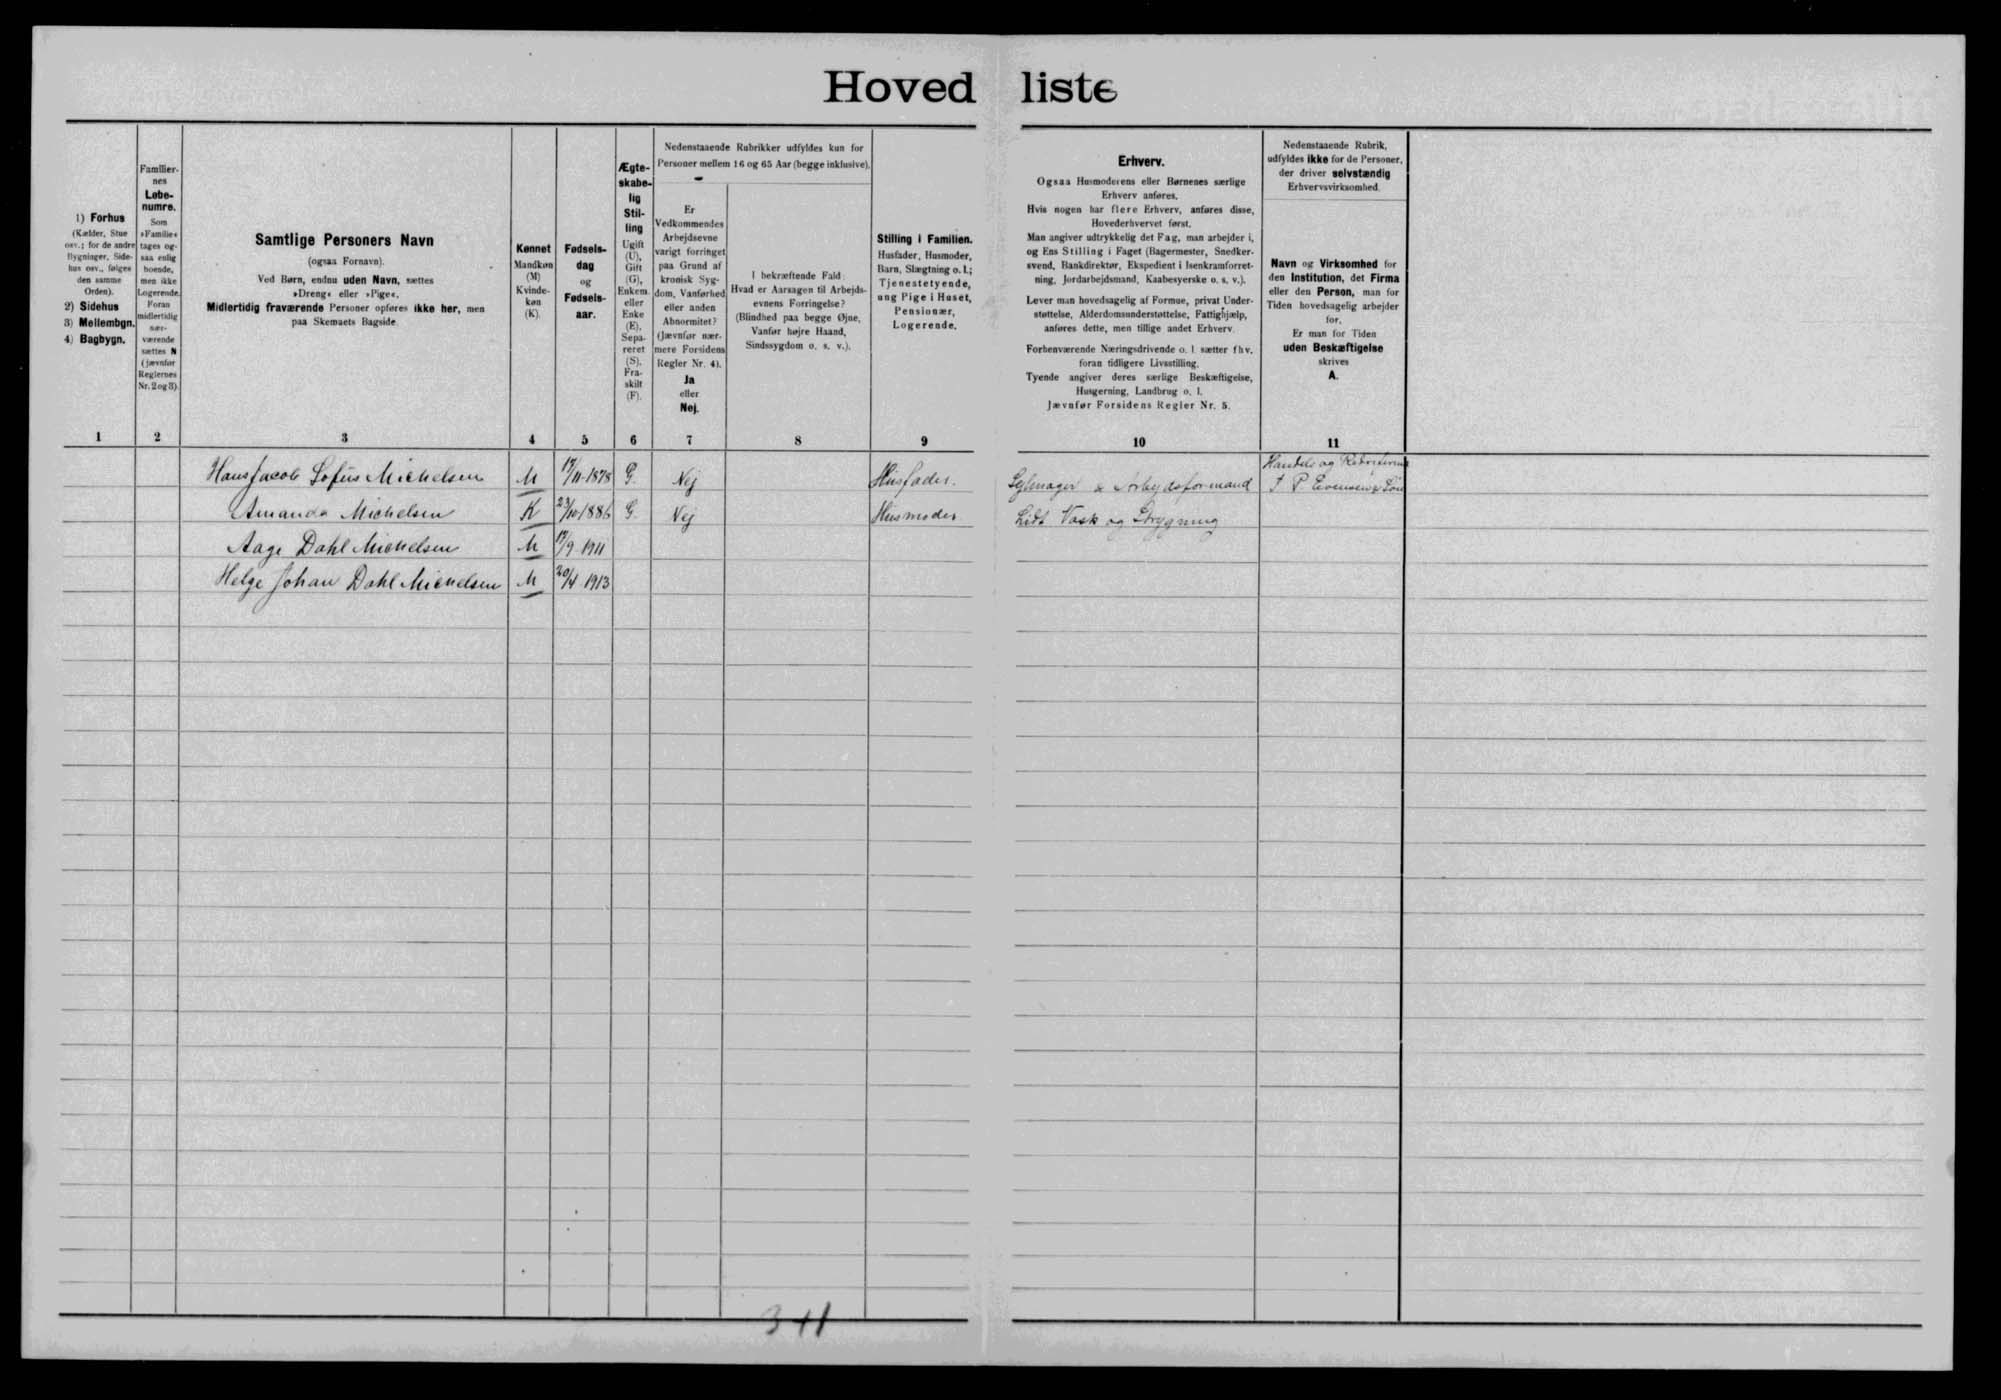 Hovedliste
1) Forhus
(Kælder, Stue
osv.; for de andre
Bygninger, Side-
hus osv., følges
den samme
Orden).
2) Sidehus
3) Mellembgn.
4) Bagbygn.
1
Familier-
nes
Løbe-
numre.
Som
»Familie«
tages og-
saa enlig
boende,
men ikke
Logerende.
Foran
midlertidig
nær-
værende
sættes N
(jævnfør
Reglernes
Nr. 2 og 3).
2
Samtlige Personers Navn
(ogsaa Fornavn).
Ved Børn, endnu uden Navn, sættes
»Dreng« eller »Pige«.
Midlertidig fraværende Personer opføres ikke her, men
paa Skemaets Bagside.
3
Kønnet
Mandkøn
(M)
Kvinde-
køn
(K).
4
Fødsels-
dag
og
Fødsels-
aar.
5
Ægte-
skabe-
lig
Stil-
ling
Ugift
(U),
Gift
(G),
Enkem.
eller
Enke
(E),
Sepa-
reret
(S),
Fra-
skilt
(F).
6
Nedenstaaende Rubrikker udfyldes kun for
Personer mellem 16 og 65 Aar (begge inklusive).
Er
Vedkommendes
Arbejdsevne
varigt forringet
paa Grund af
kronisk Syg-
dom, Vanførhed
eller anden
Abnormitet?
(Jævnfør nær-
mere Forsidens
Regler Nr. 4).
Ja
eller
Nej.
7
I bekræftende Fald:
Hvad er Aarsagen til Arbejds-
evnens Forringelse?
(Blindhed paa begge Øjne,
Vanfør højre Haand,
Sindssygdom o. s. v.).
8
Stilling i Familien.
Husfader, Husmoder,
Barn, Slægtning o. l.;
Tjenestetyende,
ung Pige i Huset,
Pensionær,
Logerende.
9
Erhverv.
Ogsaa Husmoderens eller Børnenes særlige
Erhverv anføres.
Hvis nogen har flere Erhverv, anføres disse,
Hovederhvervet først.
Man angiver udtrykkelig det Fag, man arbejder i,
og Ens Stilling i Faget (Bagermester, Snedker-
svend, Bankdirektør, Ekspedient i Isenkramforret-
ning, Jordarbejdsmand, Kaabesyerske o. s. v.).
Lever man hovedsagelig af Formue, privat Under-
støttelse, Alderdomsunderstøttelse, Fattighjælp,
anføres dette, men tillige andet Erhverv.
Forhenværende Næringsdrivende o. l. sætter fhv.
foran tidligere Livsstilling.
Tyende angiver deres særlige Beskæftigelse,
Husgerning, Landbrug o. l.
Jævnfør Forsidens Regler Nr. 5.
10
Nedenstaaende Rubrik,
udfyldes ikke for de Personer,
der driver selvstændig
Erhvervsvirksomhed.
Navn og Virksomhed for
den Institution, det Firma
eller den Person, man for
Tiden hovedsagelig arbejder
for.
Er man for Tiden
uden Beskæftigelse
skrives
A.
11
Hans Jacob Sofus Michelsen M 17/11-1878 G. Nej Husfader. & Arbejdsformand Handels og
Amanda Michelsen K 23/10-1886 G. Nej Husmoder Lidt Vask og Strygning
Aage Dahl Michelsen M 17/9 1911
Helge Johan Dahl Michelsen M 20/4 1913
341